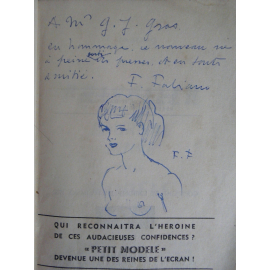 A Mr G. J. Gros
en hommage, ce nouveau né
à peine sorti des presses. et en toute
amitié.
F. Fabiano
F. F
QUI RECONNAITRA L'HEROINE
DE CES AUDACIEUSES CONFIDENCES ?
« PETIT MODELE »
DEVENUE UNE DES REINES DE L'ECRAN !